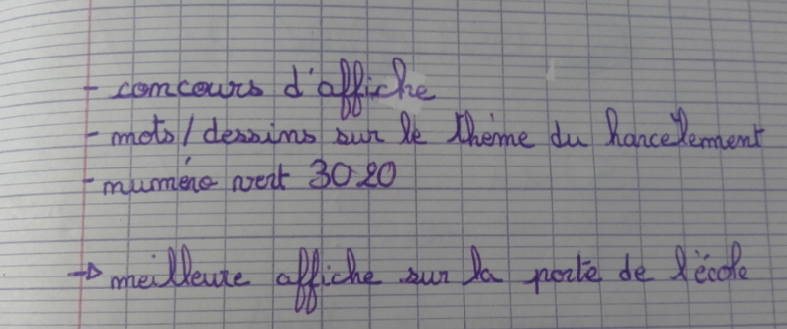 - concours d'affiche
- mots / dessins sur le thème du harcelement
- numéro vert 30 20
→ meilleure affiche sur la porte de l'école